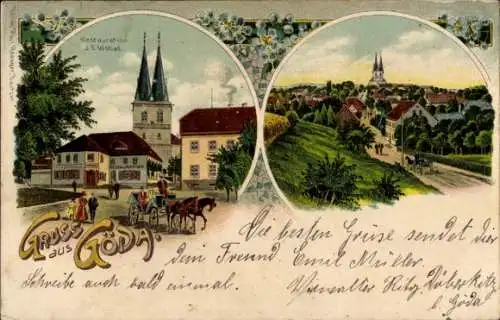 Restauration
GRUSS
aus
GÖDA.
Die besten Grüse sendet dir
dein Freund Emil Müller.
Schreibe auch bald einmal.
Verwalter Ritg. Döberkitz
b. Göda